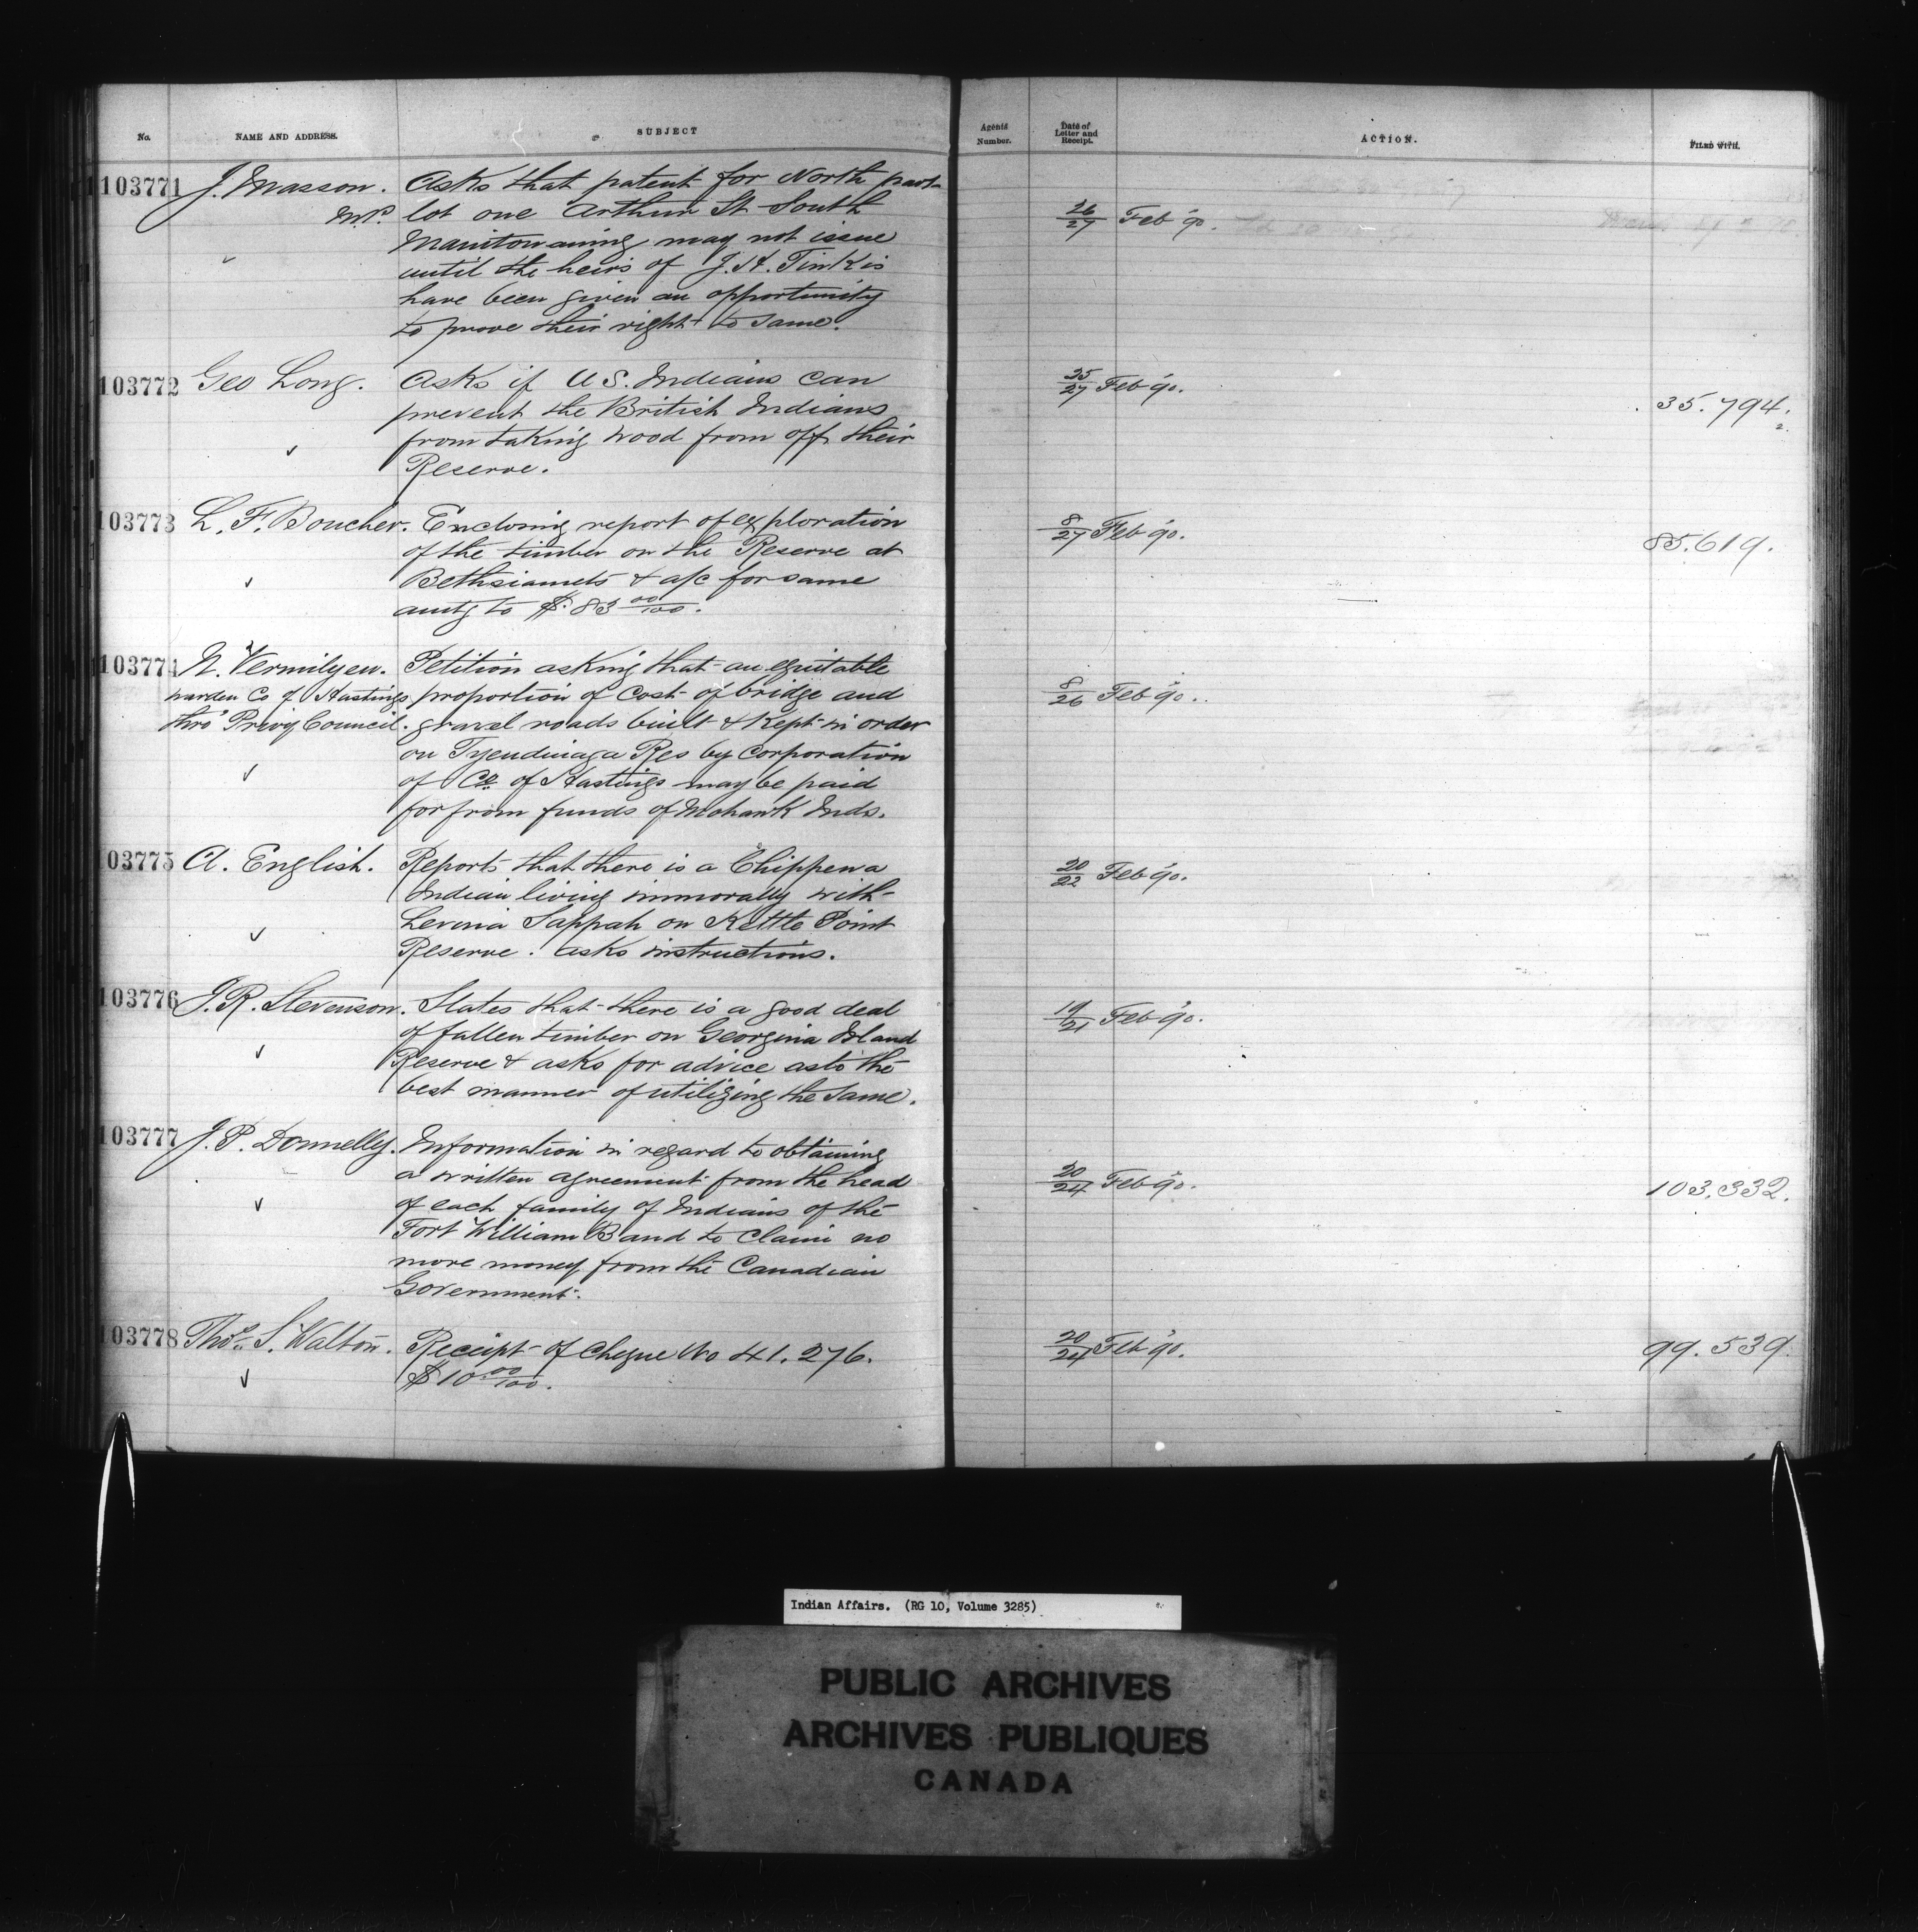 No.
NAME AND ADDRESS.
SUBJECT
Agents Number.
Date of Letter and Receipt.
ACTION.
FILED WITH.
103771 J. Masson. Asks that patent for North part
M.P. lot one Arthur St South
Manitowaning may not issue
until the heirs of J. H. Tinkis
have been given an opportunity
to prove their right to same.
26/27 Feb 90.
103772 Geo Long. Asks if U S. Indians can
prevent the British Indians
from taking wood from off their
Reserve.
25/27 Feb 90.
35.794.
2.
103773 L. F. Boucher. Enclosing report of exploration
of the timber on the Reserve at
Bethsiamits & a/c for same
amtg to $ 83 00/100.
8/27 Feb 90.
85.619.
103774 N. Vermilyea. Petition asking that an equitable
warden Co of Hastings proportion of cost of bridge and
thro' Privy Council. gravel roads built & kept in order
on Tyendinaga Res by Corporation
of Co. of Hastings may be paid
for from funds of Mohawk Inds.
8/26 Feb 90.
103775 A. English. Reports that there is a Chippewa
Indian living immorally with
Levinia Sappah on Kettle Point
Reserve. asks instructions.
20/22 Feb 90.
103776 J. R. Stevenson. States that there is a good deal
of fallen timber on Georgina Island
Reserve & asks for advice as to the
best manner of utilizing the same.
19/21 Feb 90.
103777 J. P. Donnelly. Information in regard to obtaining
a written agreement from the head
of each family of Indians of the
Fort William Band to claim no
more money from the Canadian
Government.
20/24 Feb 90.
103.332.
103778 Thos. S. Walton. Receipt of Cheque No 41.276.
$10 00/100.
20/24 Feb 90.
99.539
Indian Affairs. (RG 10, Volume 3285)
PUBLIC ARCHIVES
ARCHIVES PUBLIQUES
CANADA